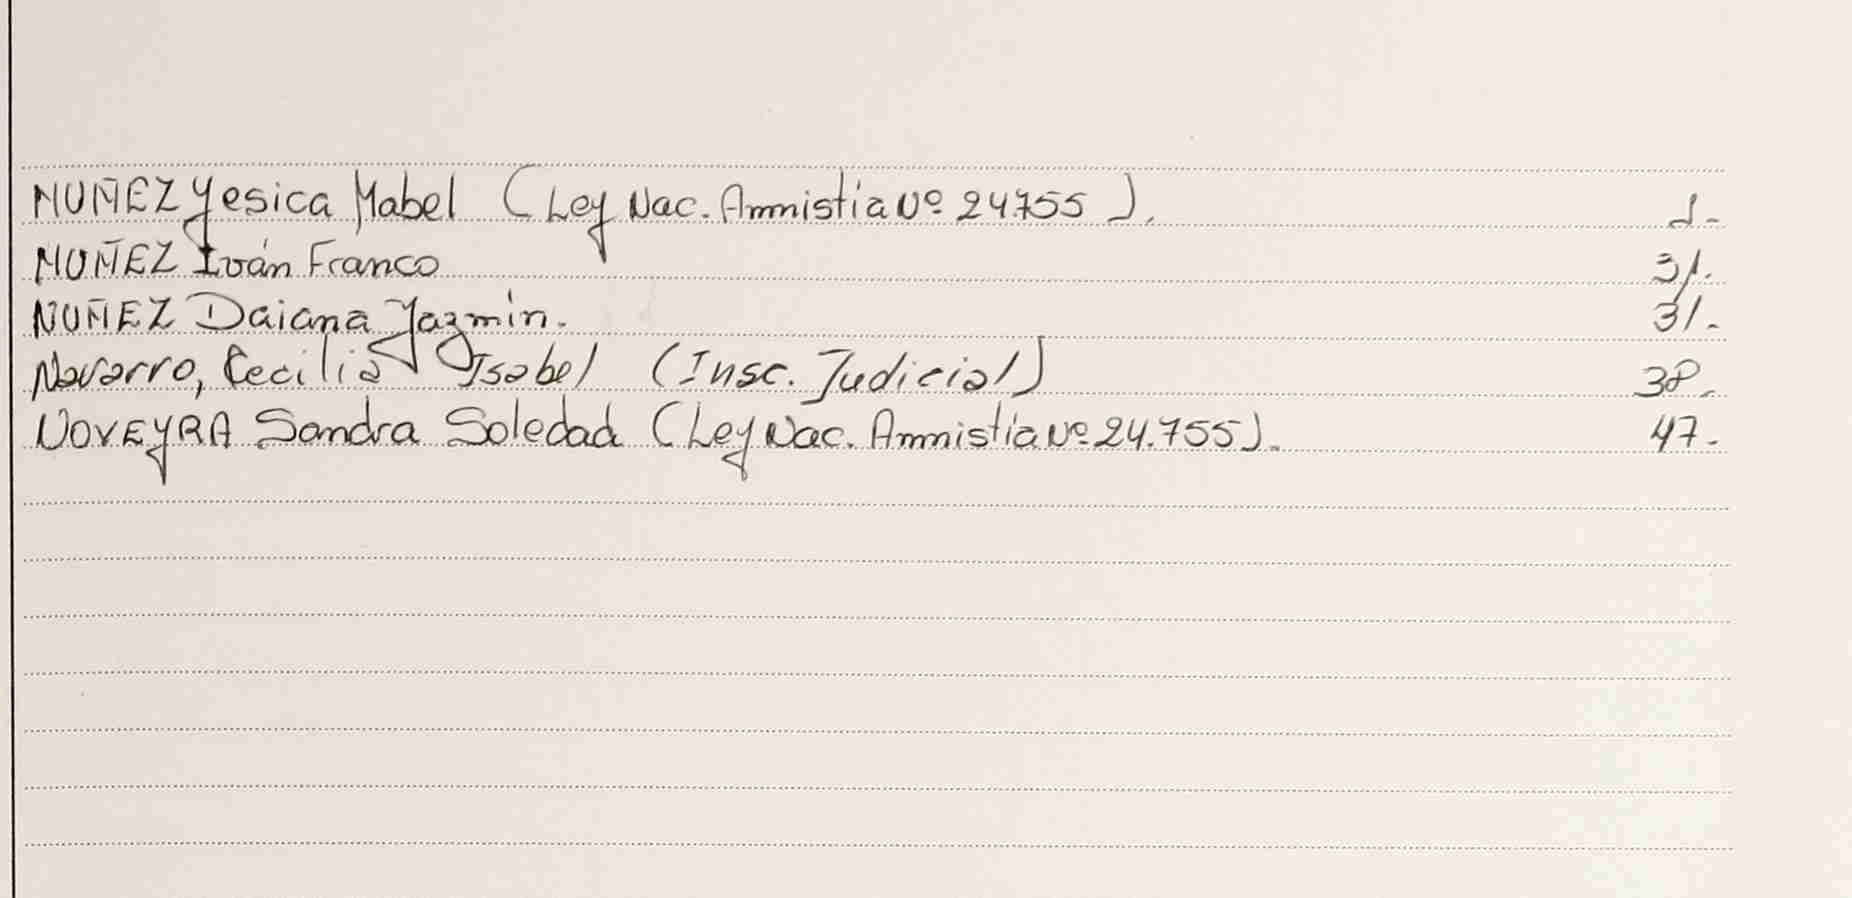 NUÑEZ Yesica Mabel (Ley Nac. Amnistia Nº 24755). 1-
NUÑEZ Iván Franco 31.
NUÑEZ Daiana Yazmin. 31.
Navarro, Cecilia Isabel (Insc. Judicial) 38.
NOVEYRA Sandra Soledad (Ley Nac. Amnistia Nº 24.755). 47.